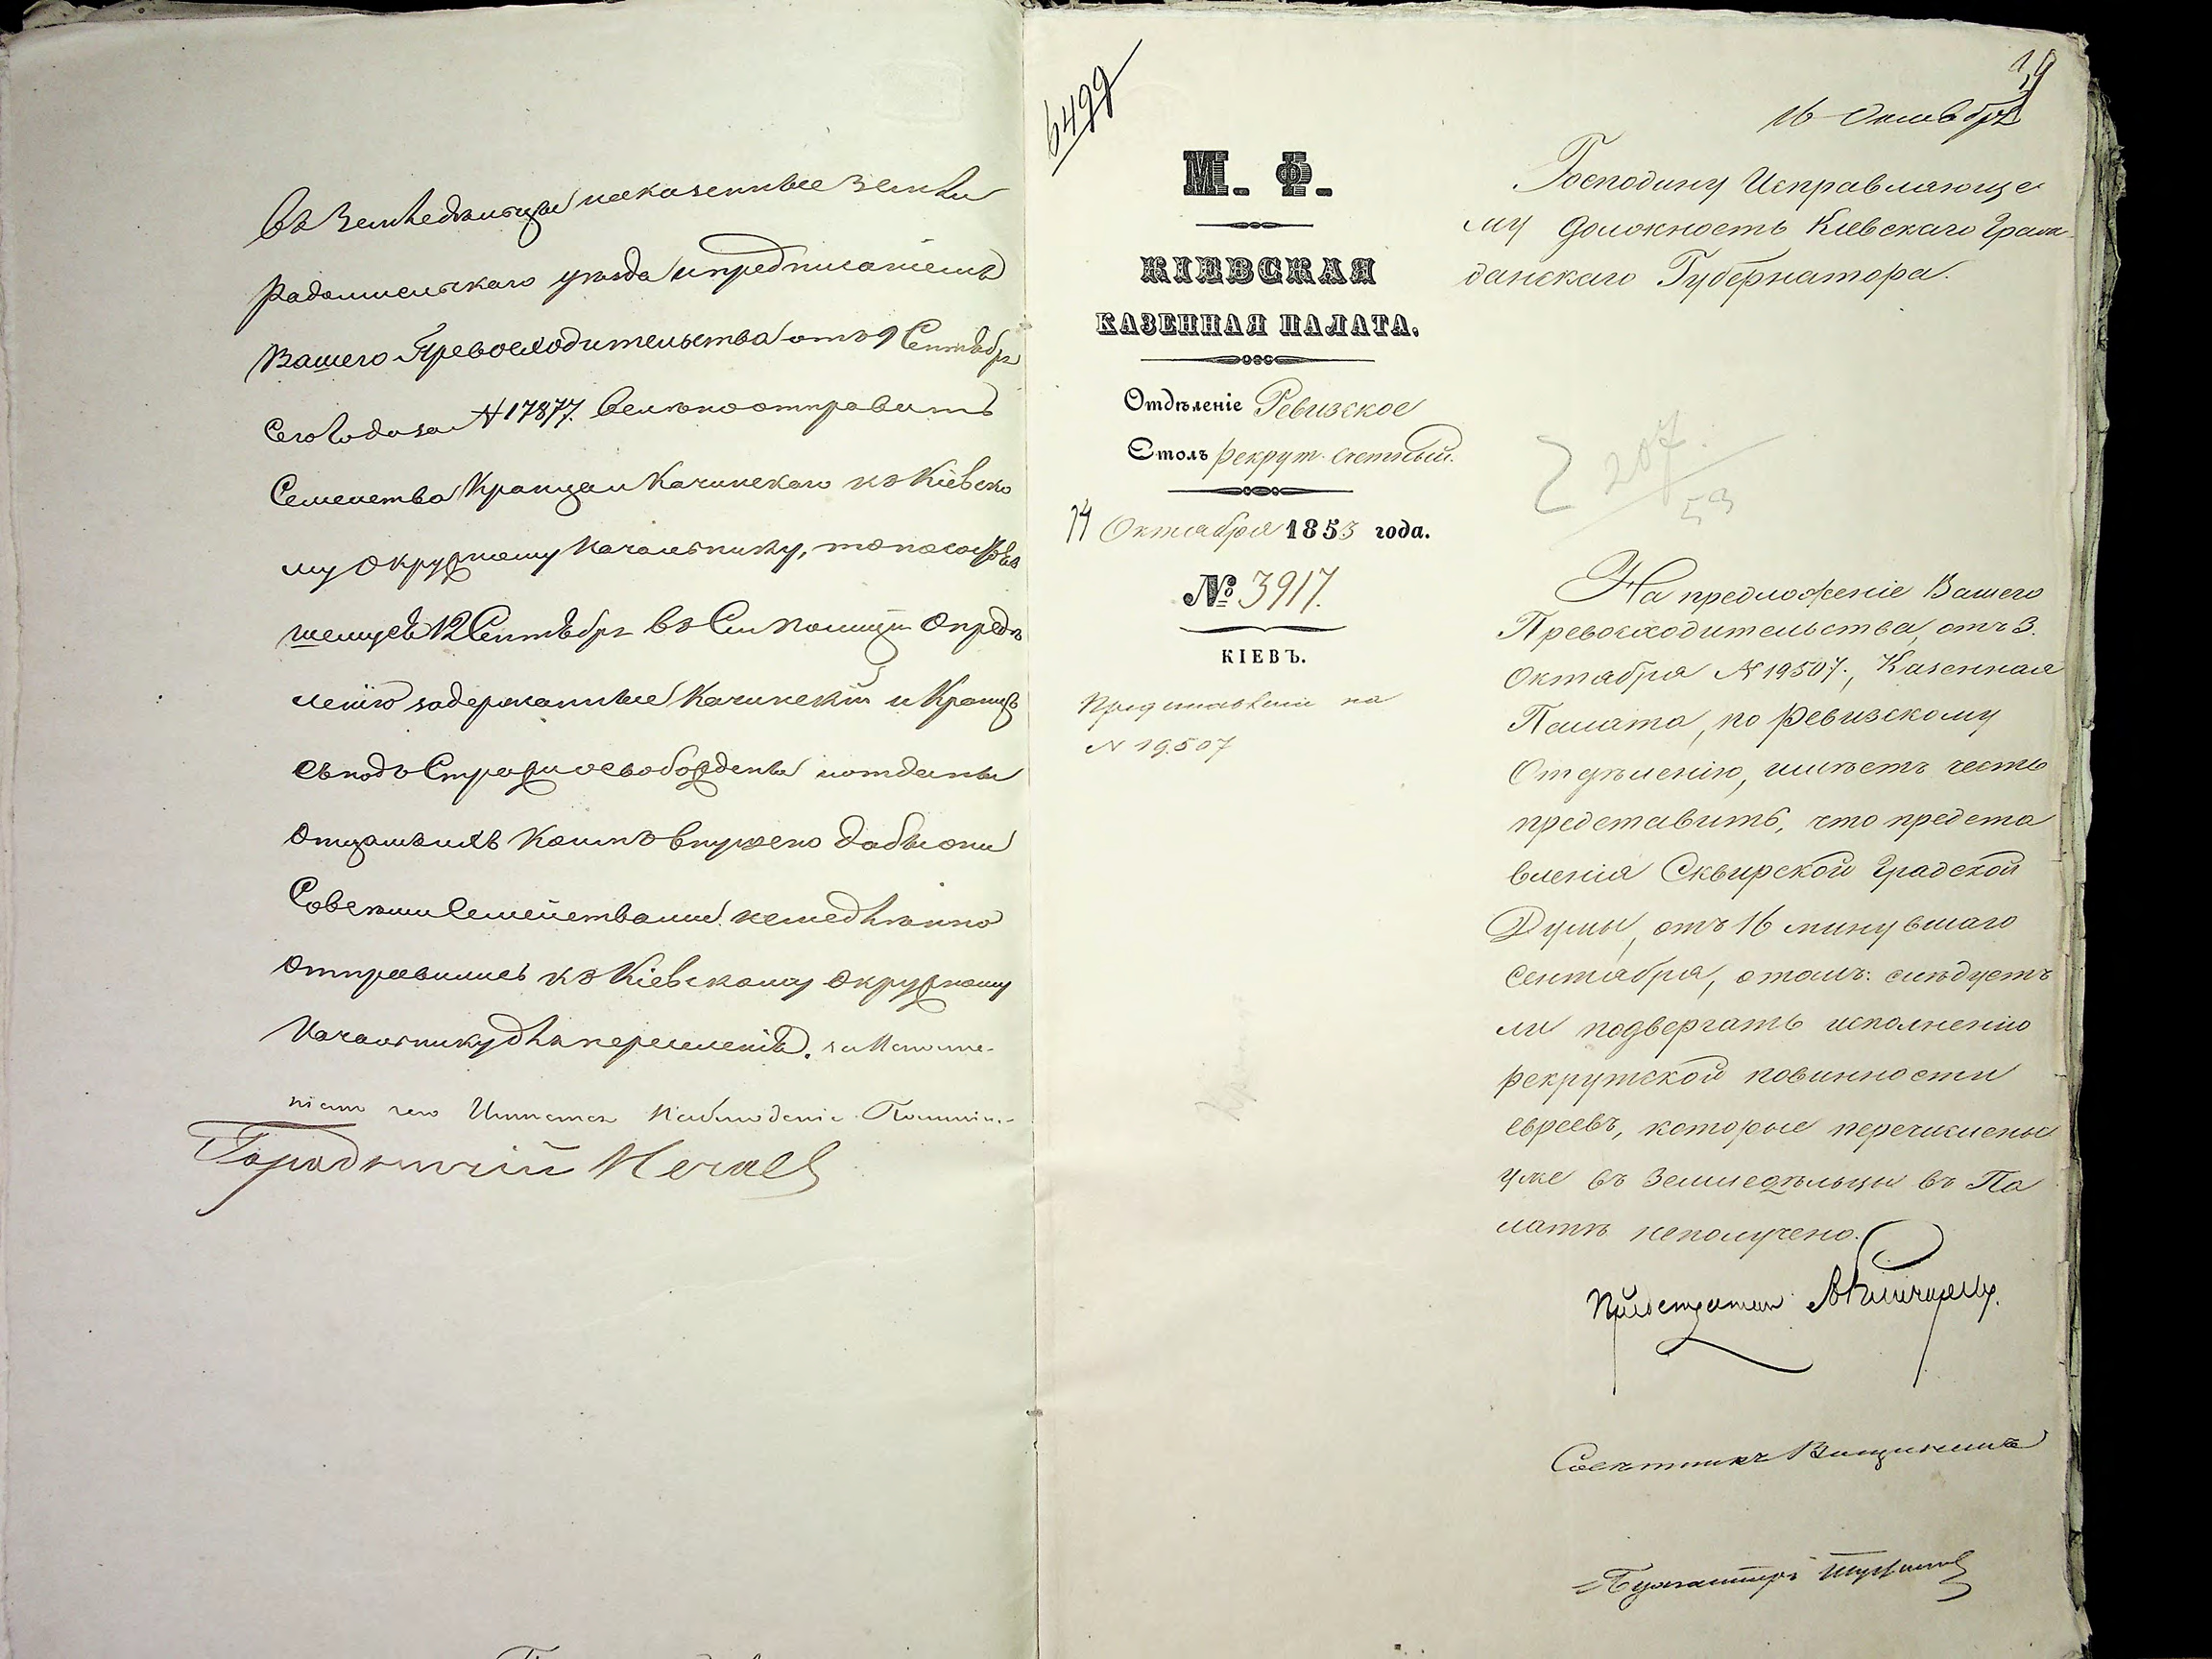 въ Земледельцы на казенные земли
Радомысльскаго уѣзда и предписаніемъ
Вашего Превосходительства отъ 9 Сентября
сего года за № 17877. велено отправить
Семейства Кранца и Качинскаго къ Кіевско
му Окружному Начальнику, то по состояв
шемуся 12 Сентября въ Сей Полиціи Опредѣ
ленію задержанные Качинскій и Кранцъ
съ подъ Стражи освобождены и отданы
Отцамъ ихъ коимъ внушено дабы они
Совсѣми Семействами немедленно
отправились къ Кіевскому Окружному
Начальнику для переселенія. за исполне-
ніемъ чего Имѣетъ Наблюденіе Полиція.
Городничій
6499
М. Ф.
КІЕВСКАЯ
КАЗЕННАЯ ПАЛАТА.
Отдѣленіе Ревизское
Столъ рекрут. счетный.
14 Октября 1853 года.
№ 3917.
КІЕВЪ.
на
№ 19507
19
16 Октября
Господину Исправляюще
му должность Кіевскаго Граж-
данскаго Губернатора.
207
53
На предложеніе Вашего
Превосходительства, отъ 3.
Октября № 19507., Казенная
Палата, по Ревизскому
Отдѣленію, имѣетъ честь
представить, что предста
вленія Сквирской Градской
Думы, отъ 16 минувшаго
Сентября, о томъ: слѣдуетъ
ли подвергать исполненію
рекрутской повинности
евреевъ, которые перечислены
уже въ Земледѣльцы въ Па
латѣ неполучено.
Предсѣдатель
Совѣтникъ
Бухгалтеръ